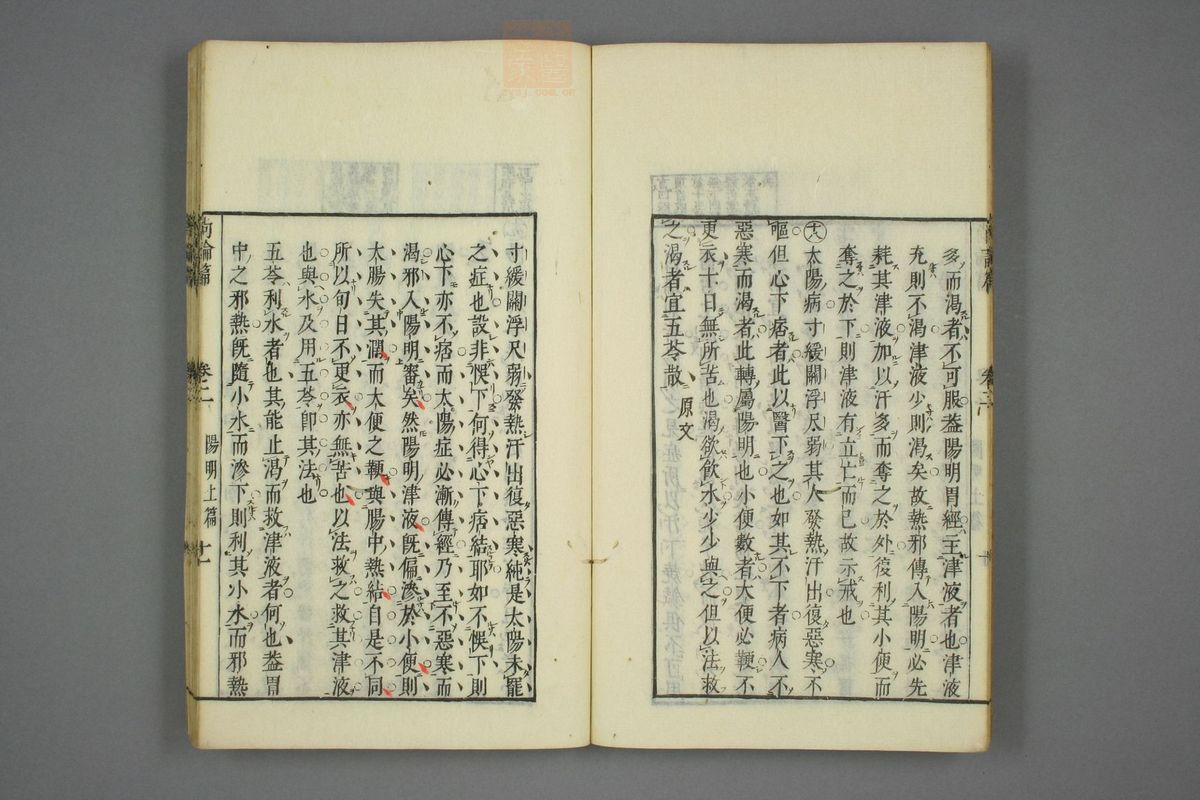 多而渴者不可服蓋陽明胃經主津液者也津液
充則不渴津液少則渴矣故熱邪傳入陽明必先
耗其津液加以汗多而奪之於外復利其小便而
奪之於下則津液有立亡而已故示戒也
十八太陽病寸緩關浮尺弱其人發熱汗出復惡寒不
嘔但心下痞者此以醫下之也如其不下者病人不
惡寒而渴者此轉屬陽明也小便數者大便必鞕不
更衣十日無所苦也渴欲飲水少少與之但以法救
之渴者宜五苓散 原文
寸緩關浮尺弱發熱汗出復惡寒純是太陽未罷
之症也設非悞下何得心下痞結耶如不悞下則
心下亦不痞而太陽症必漸傳經乃至不惡寒而
渴邪入陽明審矣然陽明津液旣偏滲於小便則
大腸失其潤而大便之鞕與腸中熱結自是不同
所以旬日不更衣亦無苦也以法救之救其津液
也與水及用五苓卽其法也
五苓利水者也其能止渴而救津液者何也蓋胃
中之邪熱旣隨小水而滲下則利其小水而邪熱
尚論篇
卷二
陽明上篇
十一